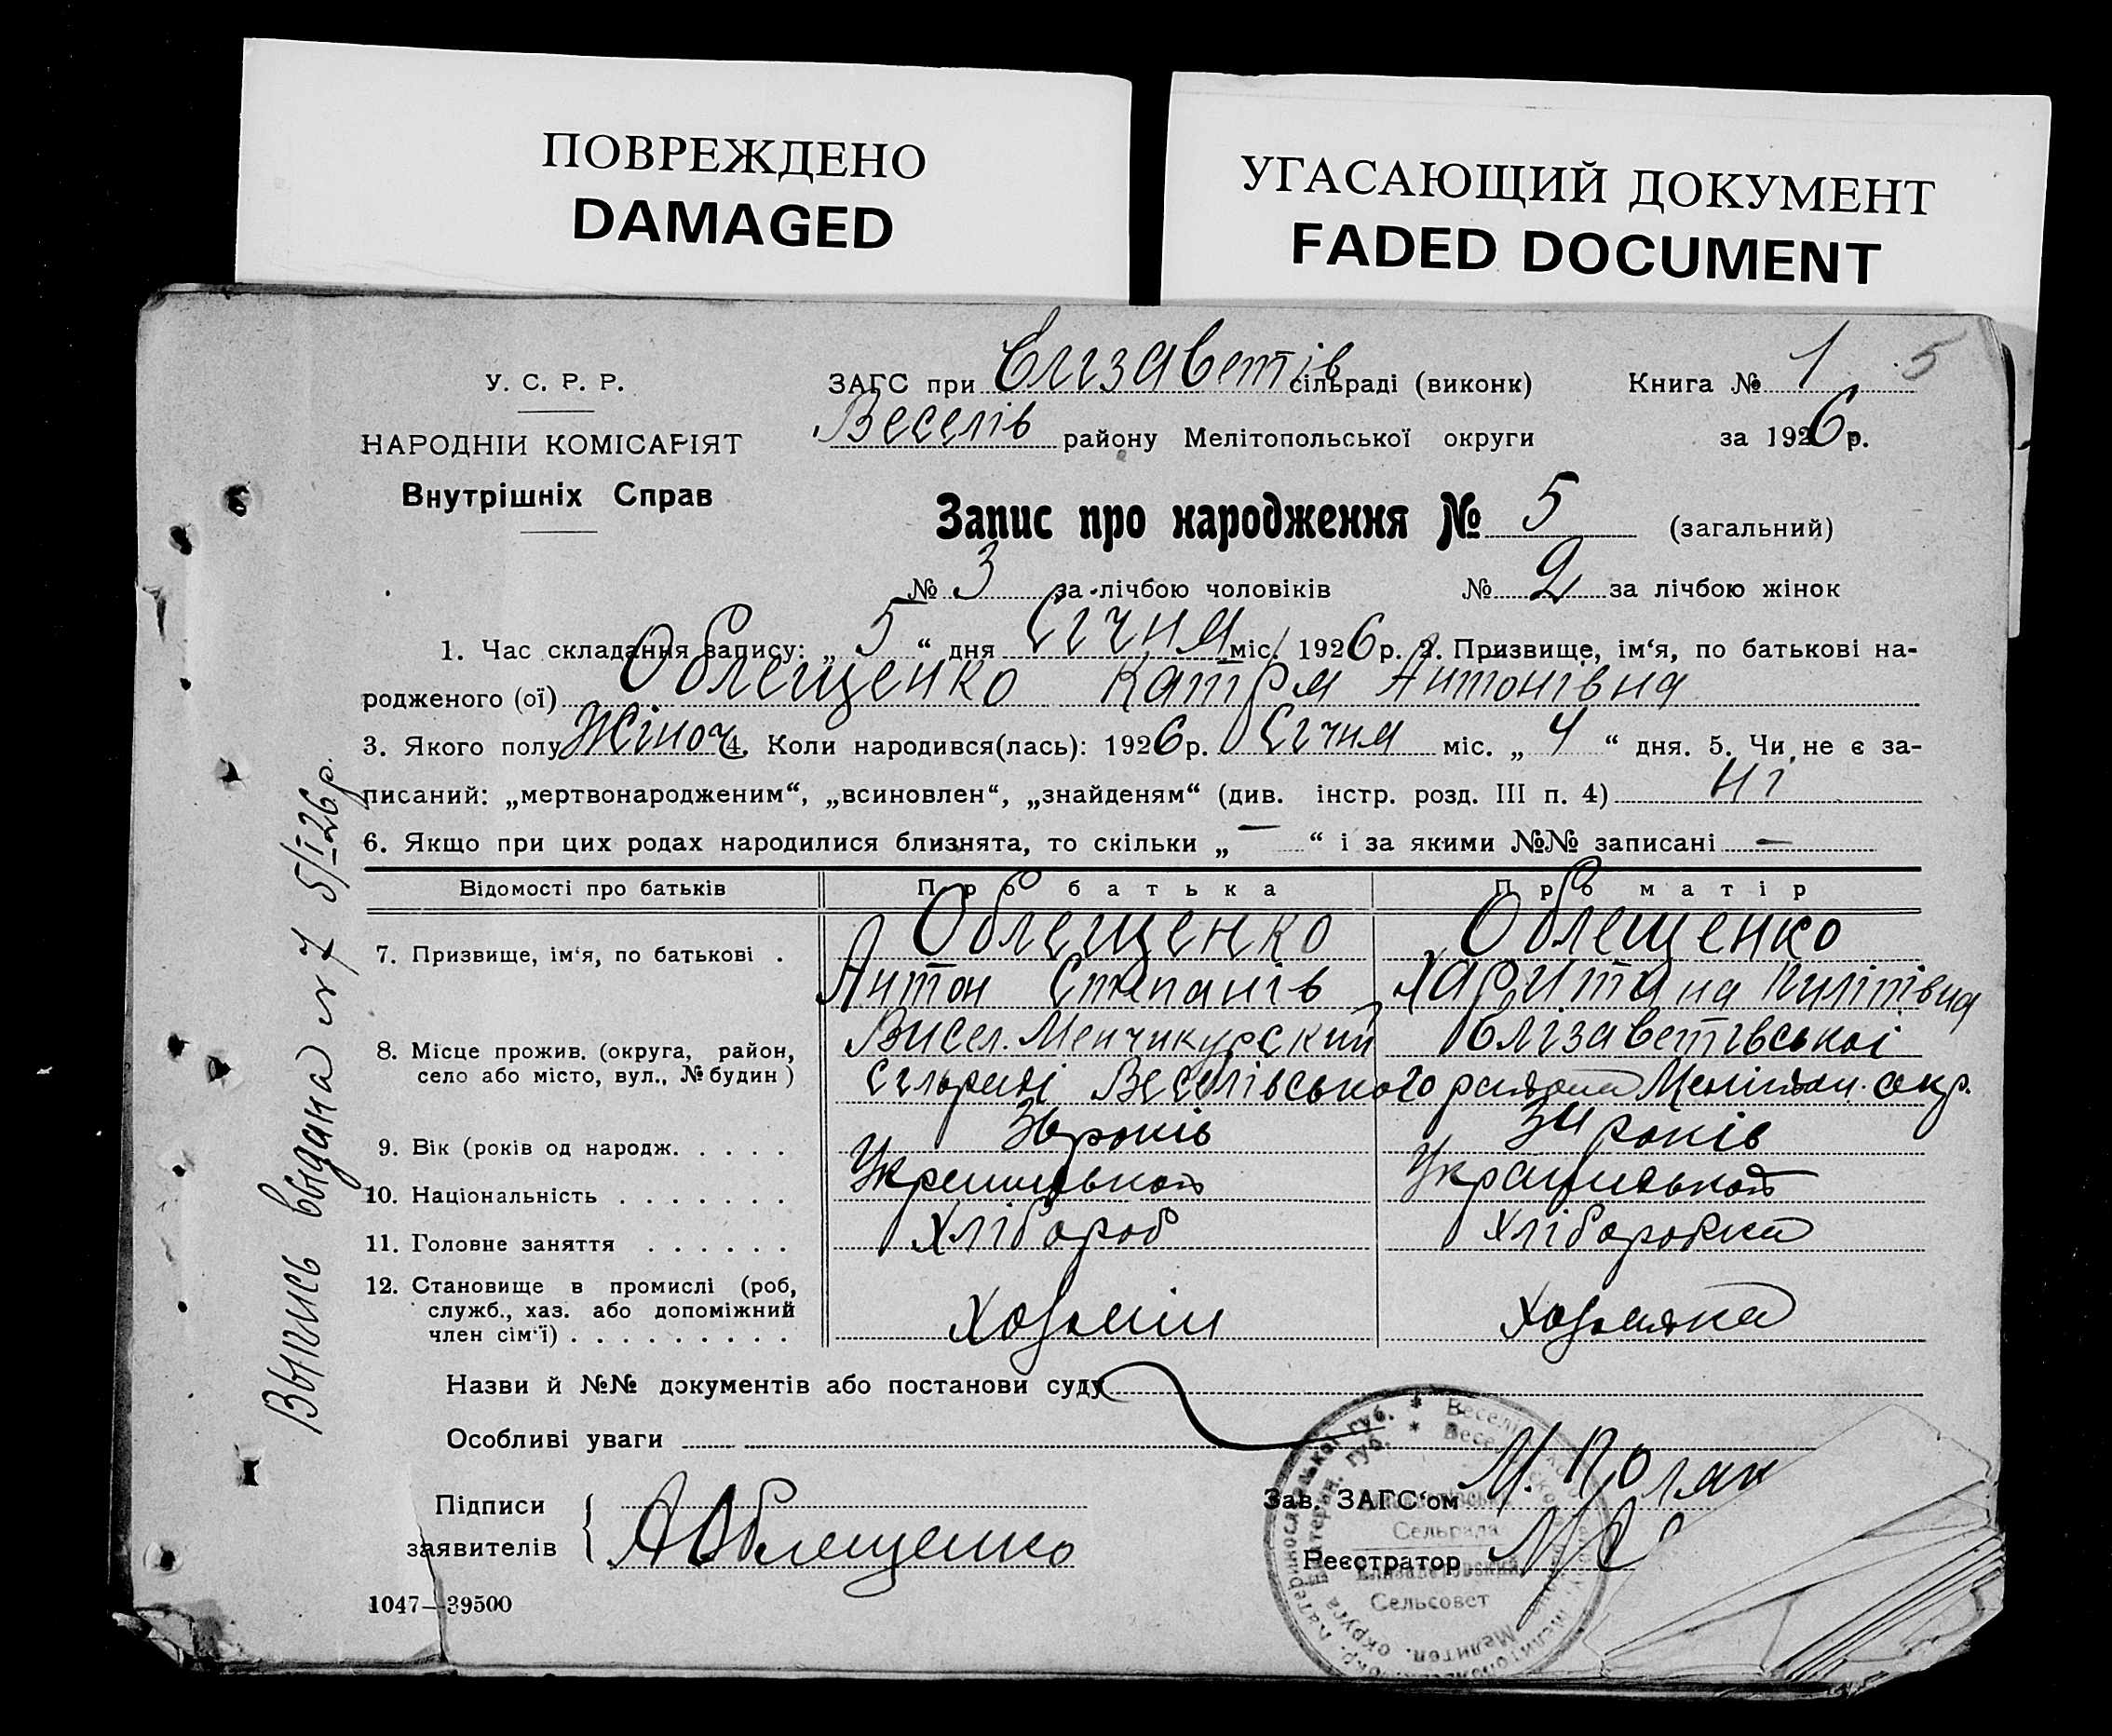 ПОВРЕЖДЕНО
DAMAGED
УГАСАЮЩИЙ ДОКУМЕНТ
FADED DOCUMENT
У. С. Р. Р.
НАРОДНІЙ КОМІСАРІЯТ
Внутрішніх Справ
ЗАГС при Єлизаветів сільраді (виконк) Книга № 1 5
Веселів району Мелітопольської округи за 1926 р.
Запис про народження № 5 (загальний)
№ 3 за лічбою чоловіків № 2 за лічбою жінок
1. Час складання запису: „ 5 “ дня Січня міс. 1926 р. 2. Призвище, ім‘я, по батькові на-
родженого (ої) Облещенко Катря Антонівна
3. Якого полу Жіноч 4. Коли народився(лась): 1926 р. Січня міс. „ 4 “ дня. 5. Чи не є за-
писаний: „мертвонародженим“, „всиновлен“, „знайденям“ (див. інстр. розд. III п. 4) ні
6. Якщо при цих родах народилися близнята, то скільки „ — “ і за якими №№ записані —
Відомості про батьків Про батька Про матір
7. Призвище, ім‘я, по батькові . Облещенко Облещенко
Антон Степанів Харитина Пиліпівна
8. Місце прожив. (округа, район, Висел. Менчикурский Єлізаветівської
село або місто, вул., № будин) сільраді Веселівського района Меліт окр.
9. Вік (років од народж. . . . . 36 років 34 років
10. Національність . . . . . . . Української Української
11. Головне заняття . . . . . . Хлібороб Хліборобка
12. Становище в промислі (роб,
служб., хаз. або допоміжний Хозяїн Хозяйка
член сім‘ї) . . . . . . . . .
Назви й №№ документів або постанови суду
Особливі уваги
Підписи
заявителів А Облещенко
Зав. ЗАГС‘ом М. Поляк
Реєстратор
Сельрада
Елизаветовский
Сельсовет
1047—39500
Выпись выдана № 7 5/I 26 р.